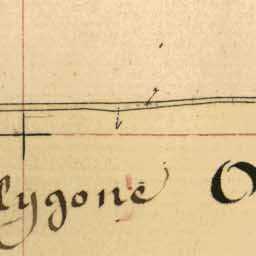 lygone O